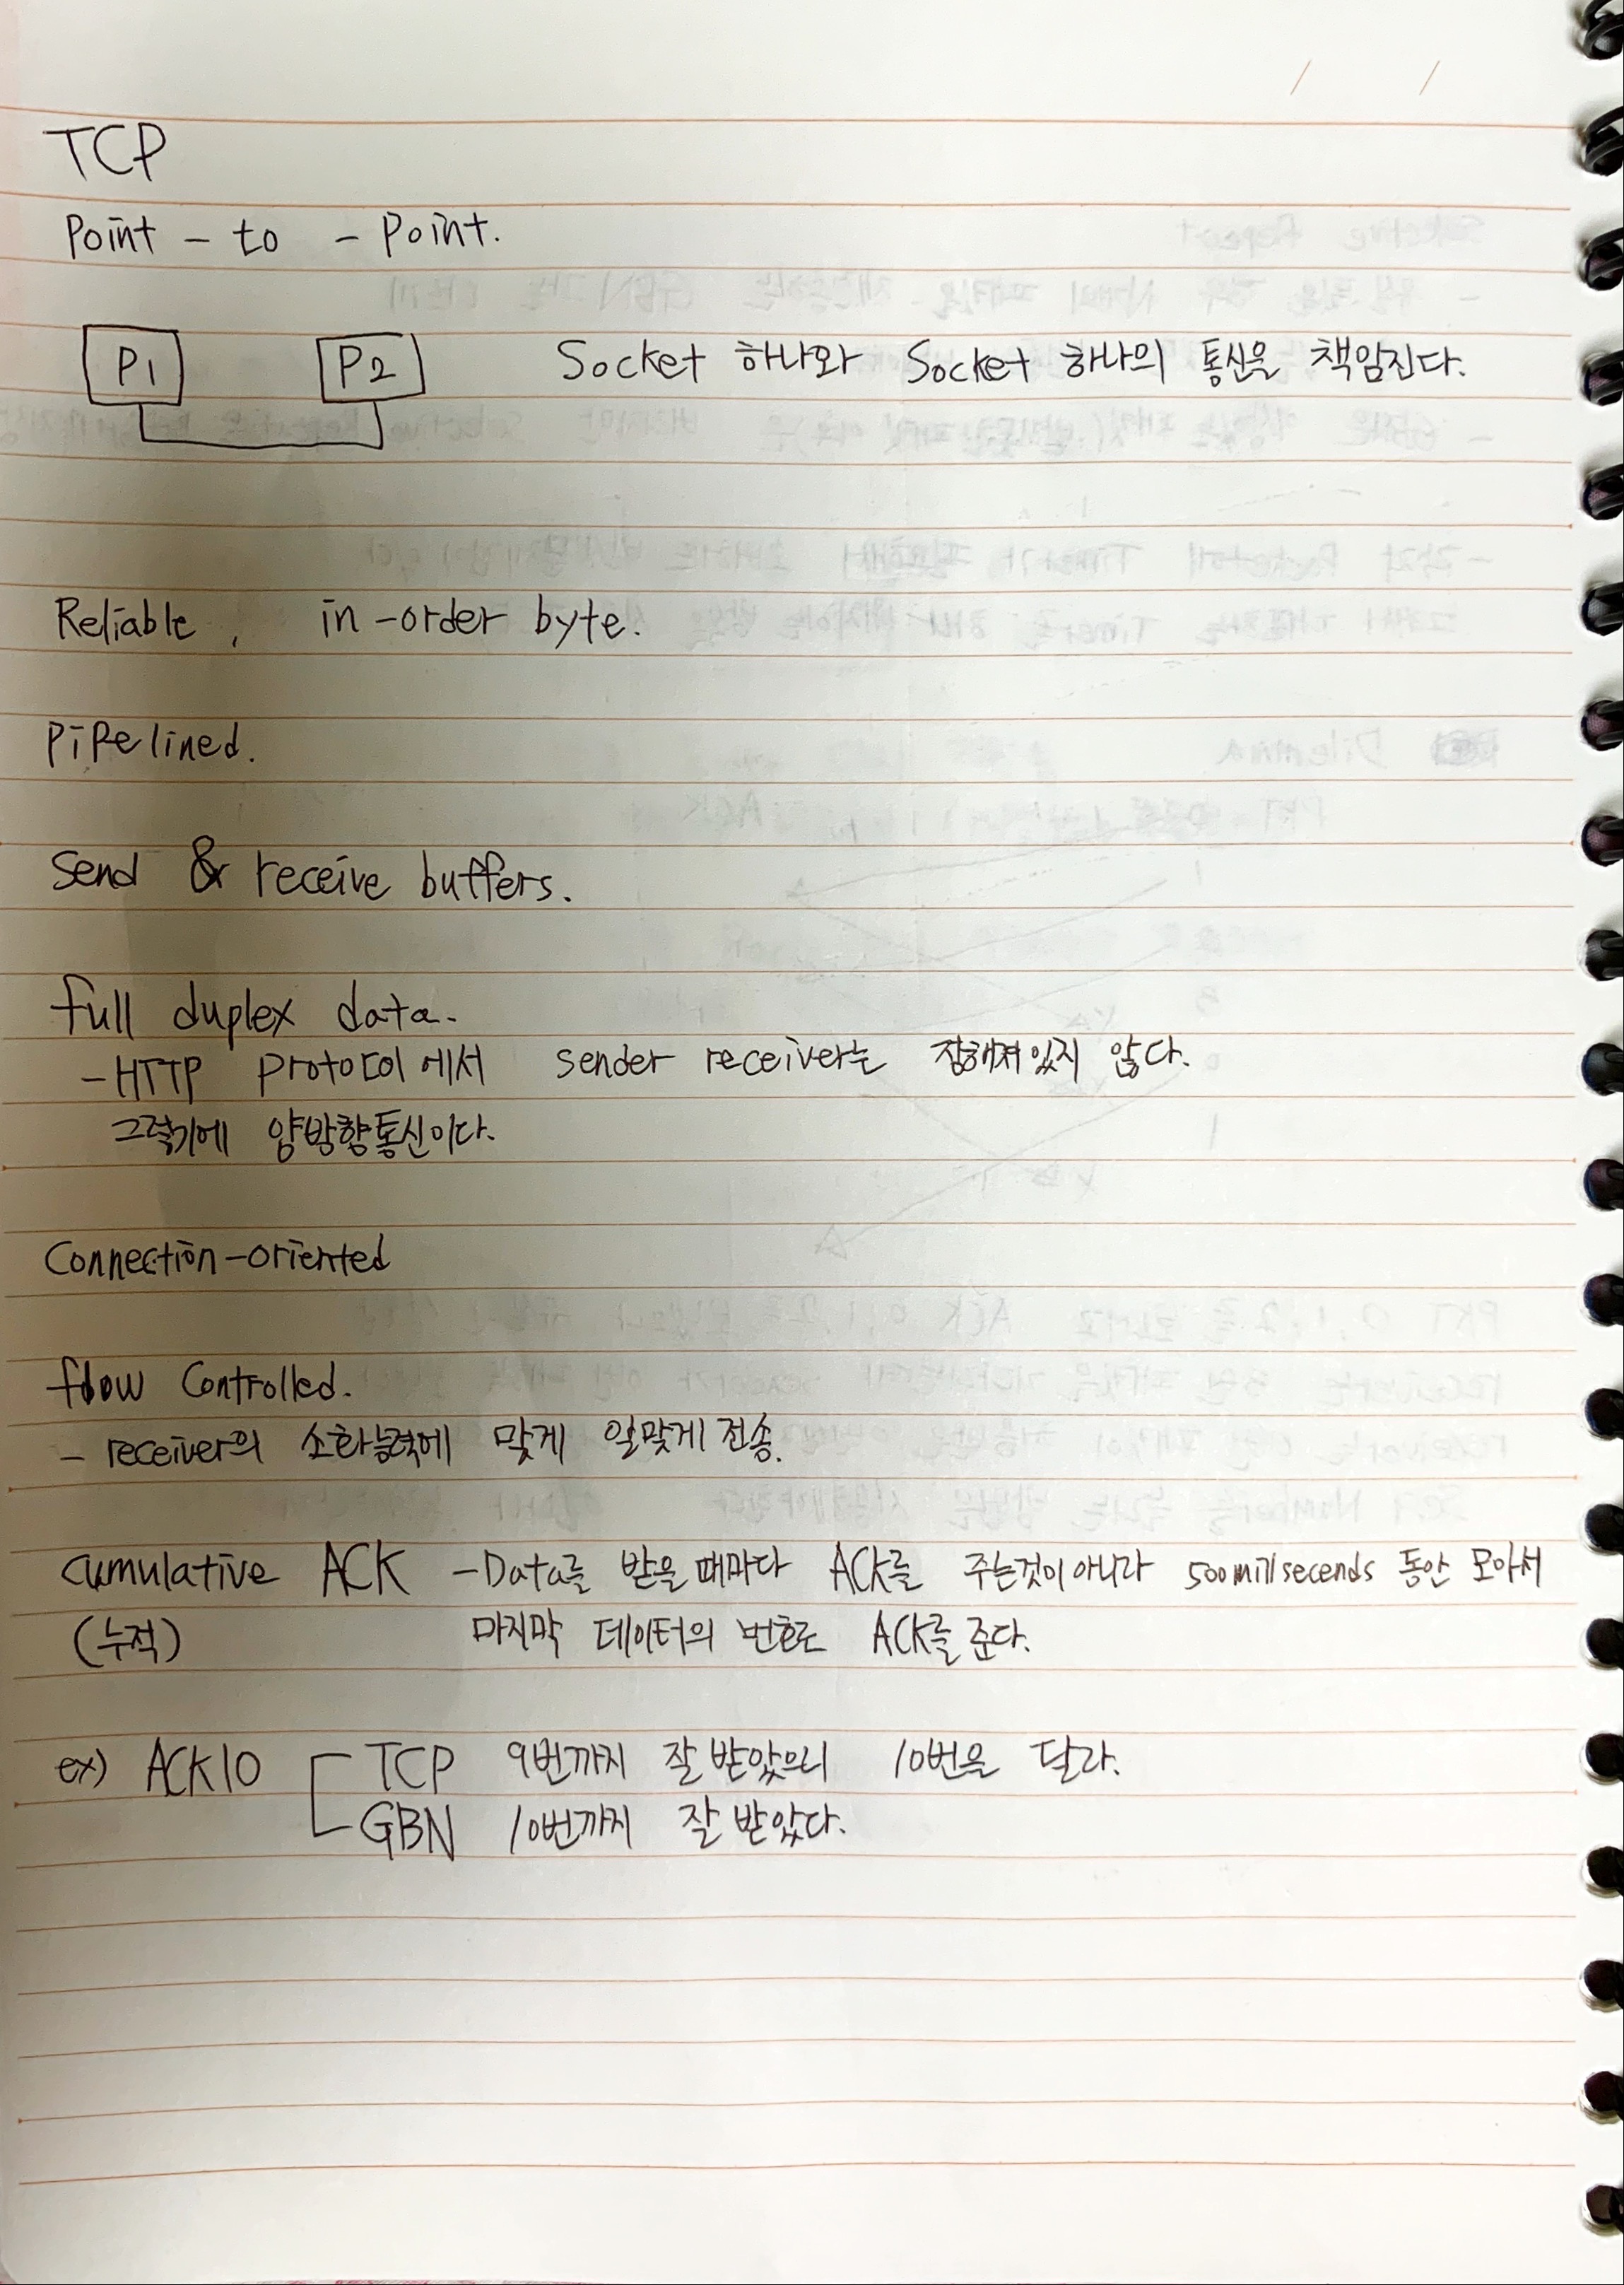 TCP
Point - to - Point.
P1 P2 Socket 하나와 Socket 하나의 통신을 책임진다.
Reliable, in-order byte.
Pipelined.
Send & receive buffers.
full duplex data.
- HTTP Protocol에서 sender receiver는 정해져있지 않다.
그렇기에 양방향통신이다.
Connection-oriented
flow Controlled.
- receiver의 소화능력에 맞게 알맞게 전송.
Cumulative ACK - Data를 받을때마다 ACK를 주는것이아니라 500millsecends 동안 모아서
(누적) 마지막 데이터의 번호로 ACK를 준다.
ex) ACK10 TCP 9번까지 잘 받았으니 10번을 달라.
GBN 10번까지 잘 받았다.